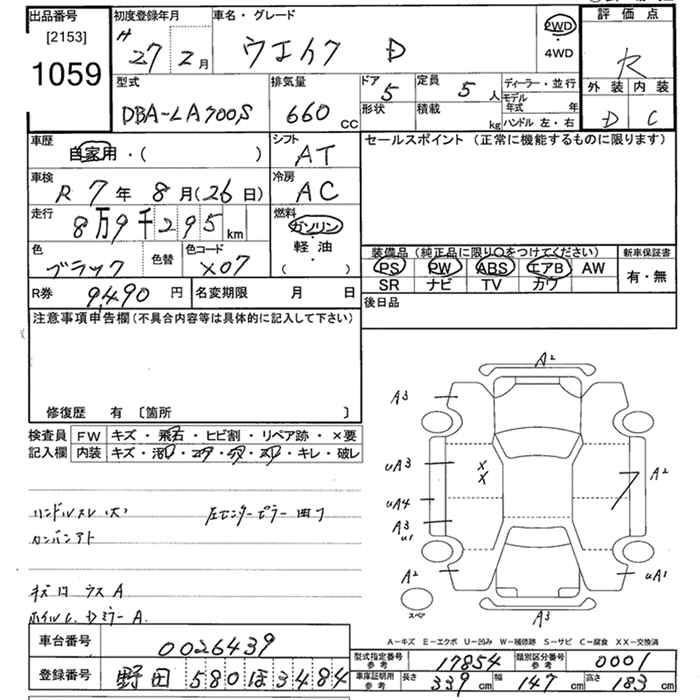 出品番号 初度登録年月 車名・グレード 評価点
[2153] H 27年 2月 ウエイク D 2WD・4WD R
1059
型式 排気量 ドア 5 定員 5人 ディーラー・並行 外装 内装
DBA-LA700S 660 CC 形状 積載 kg モデル年式 年 D C
ハンドル 左・右
車歴 シフト セールスポイント(正常に機能するものに限ります)
自家用・( ) AT
車検 冷房
R 7年 8月(26日) AC
走行 燃料
8万9千295km ガソリン・軽油・( )
色 色替 色コード 装備品(純正品に限り○をつけてください) 新車保証書
ブラック X07 PS PW ABS エアB AW 有・無
SR ナビ TV カワ
R券 9,490円 名変期限 月 日 後日品
注意事項申告欄(不具合内容等は具体的に記入して下さい)
修復歴 有 [箇所 ]
検査員 FW キズ・飛石・ヒビ割・リペア跡・×要
記入欄 内装 キズ・
・キレ・破レ
ハンドルスレ(大) 左センターピラー曲り
カンバンアト
キズ凹 ラスA
ホイルC. Dミラー A.
A2
A3
uA3 XX A2
uA4
A3 u1
A2 uA1
A3
スペア
A-キズ E-エクボ U-凹み W-補修跡 S-サビ C-腐食 XX-交換済
車台番号 0026439
型式指定番号 参考 17854 類別区分番号 参考 0001
登録番号 野田 580 ほ 3484
車庫証明用 参考 長さ 339cm 幅 147cm 高さ 183cm